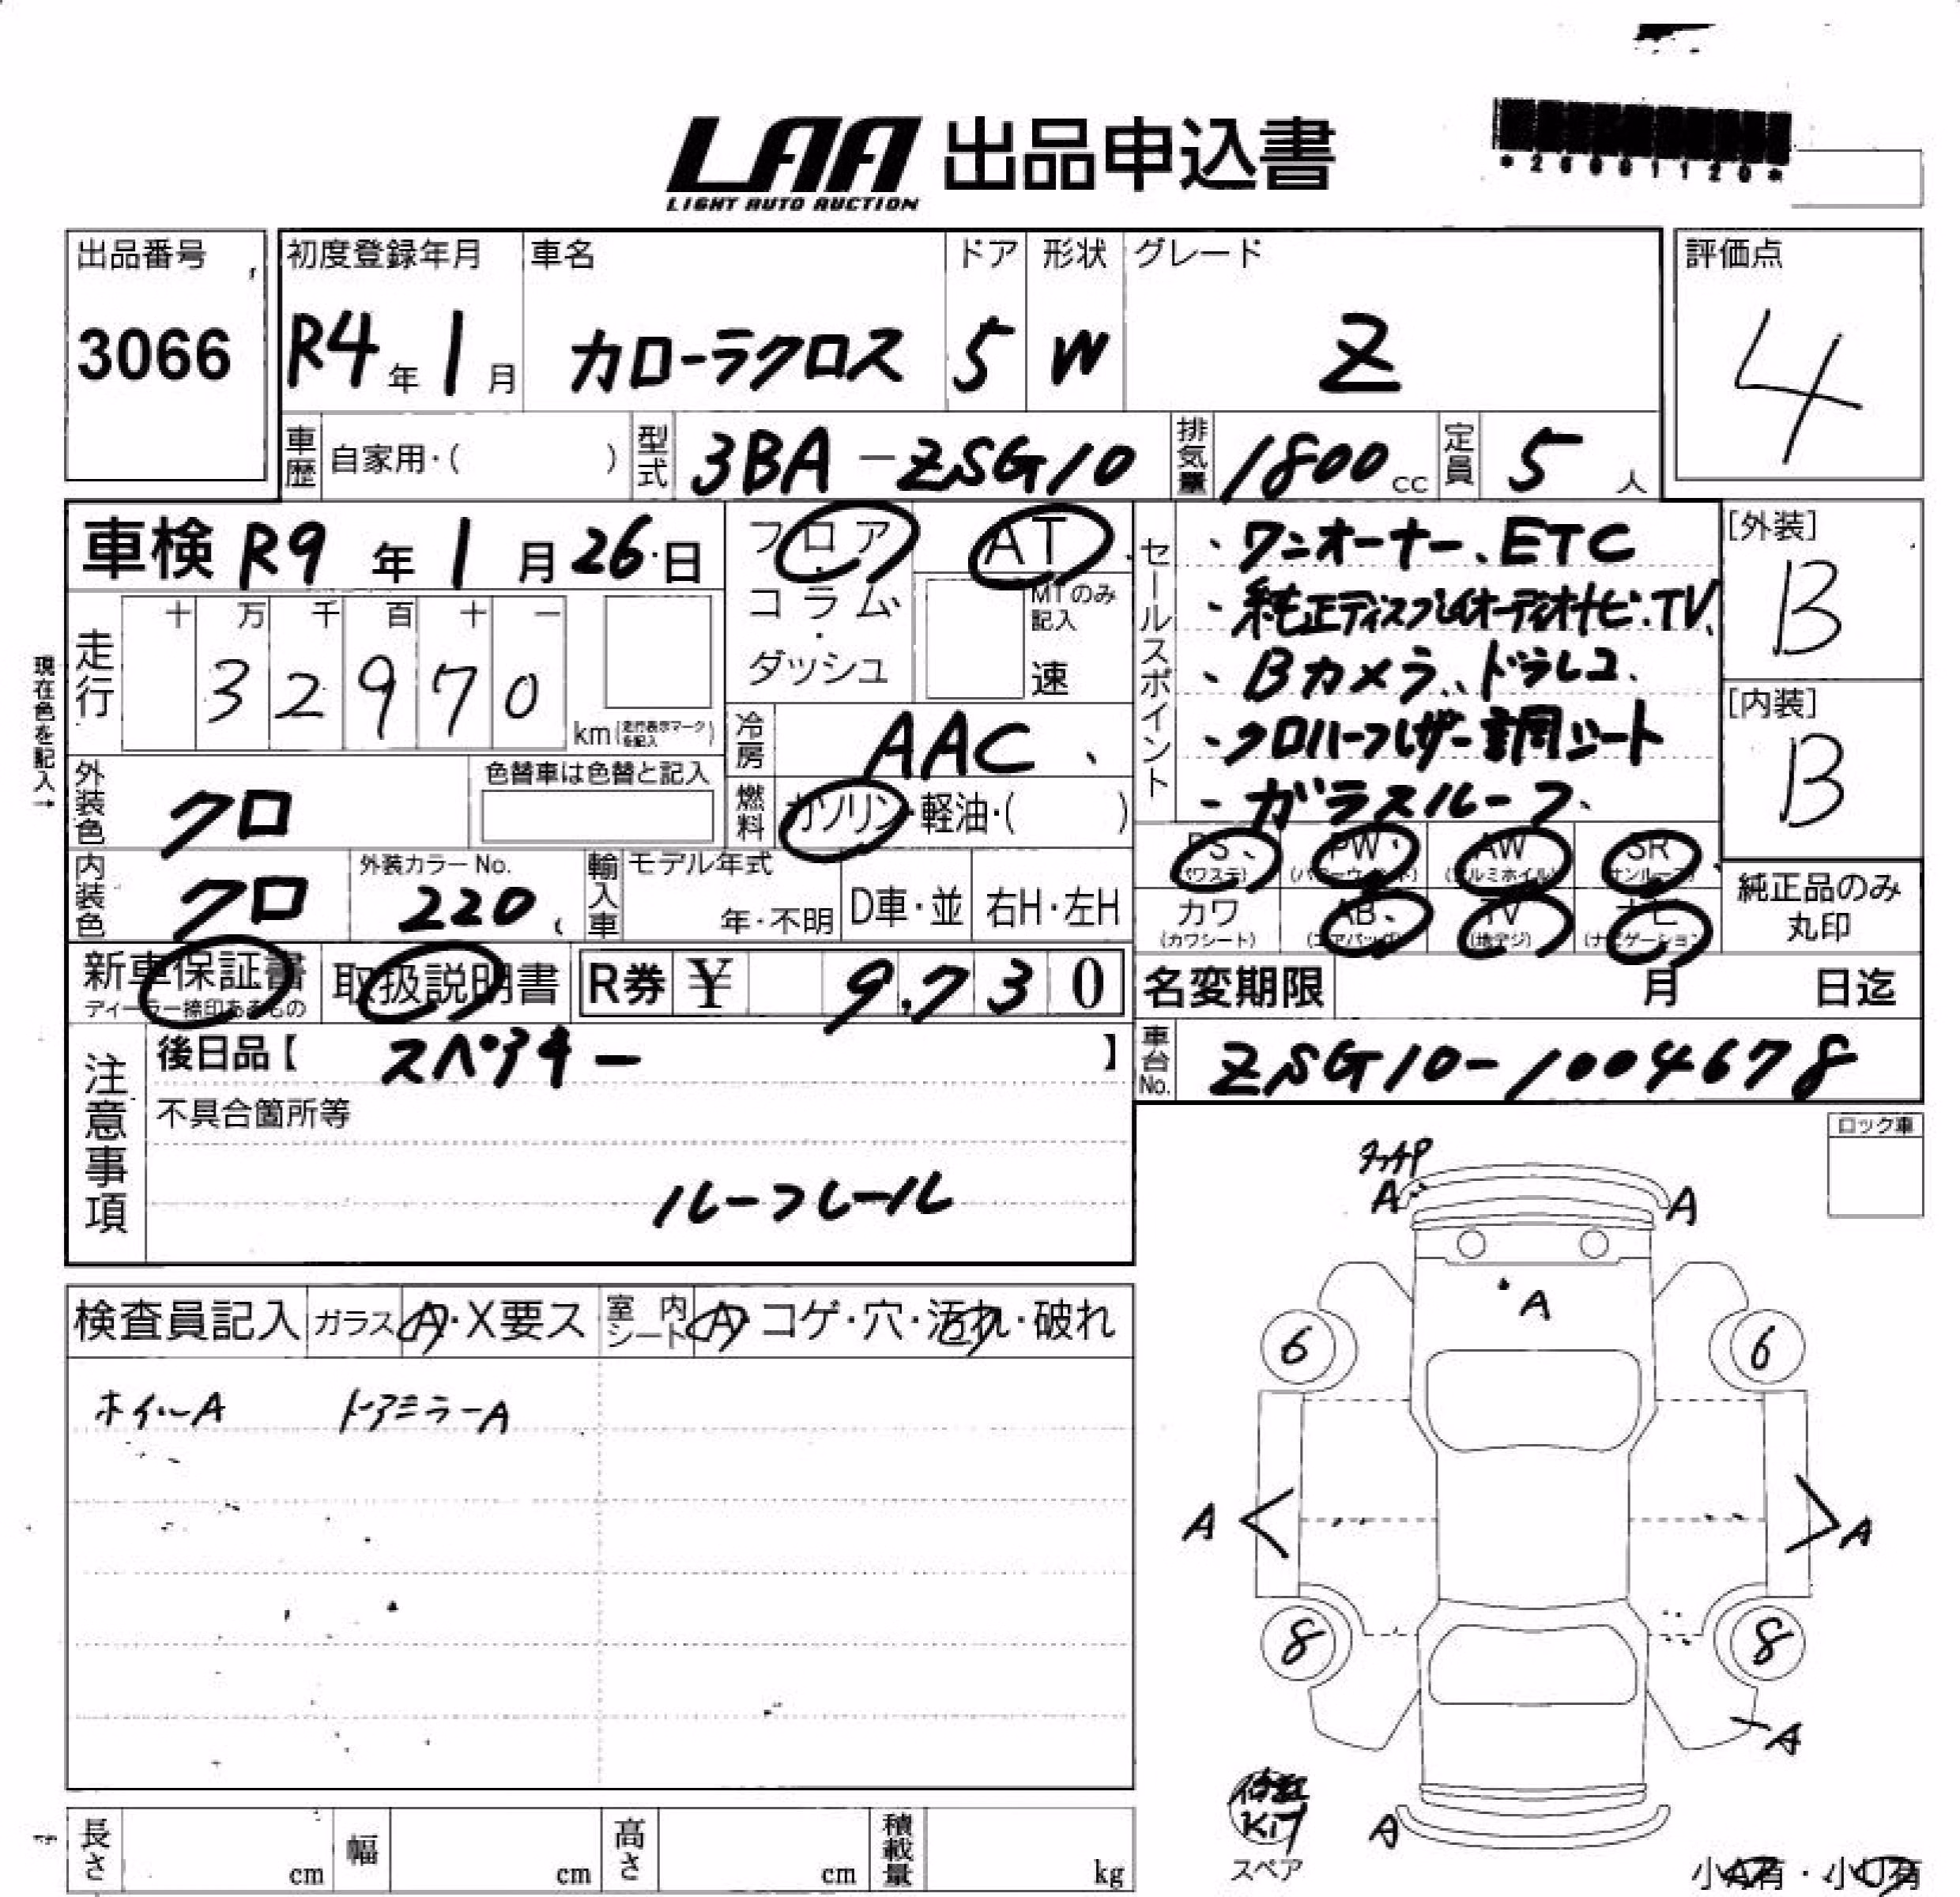 LAA 出品申込書
LIGHT AUTO AUCTION
出品番号 初度登録年月 車名 ドア 形状 グレード 評価点
3066 R4年 1月 カローラクロス 5 W Z 4
車歴 自家用・( ) 型式 3BA-ZSG10 排気量 1800cc 定員 5人
車検 R9年 1月 26日 フロア AT
コラム・ダッシュ MTのみ記入 速
現在色を記入→
走行 十 万 千 百 十 一
3 2 9 7 0 km(走行表示マークを記入)
冷房 AAC
セールスポイント
・ワンオーナー、ETC
・純正ディスプレイオーディオナビ.TV
・Bカメラ、ドラレコ
・クロハーフレザー調シート
・ガラスルーフ
[外装] B
[内装] B
外装色 クロ 色替車は色替と記入
燃料 ガソリン・軽油・( )
内装色 クロ 外装カラーNo. 220 輸入車 モデル年式 年・不明 D車・並 右H・左H
PS (パワステ) PW (パワーウィンド) AW (アルミホイル) SR (サンルーフ)
カワ (カワシート) AB (エアバッグ) TV (地デジ) ナビ (ナビゲーション)
純正品のみ丸印
新車保証書 ディーラー捺印あるもの 取扱説明書 R券 ¥ 9,730
名変期限 月 日迄
注意事項 後日品【 スペアキー 】
車台No. ZSG10-1004678
不具合箇所等
ルーフレール
ロック車
検査員記入 ガラス A・X要ス 室内シート A・コゲ・穴・汚れ・破れ
ホイルA ドアミラーA
A A
A
6 6
A A
8 8
A
修理
KIT
スペア
A
小A有・小U有
長さ cm 幅 cm 高さ cm 積載量 kg